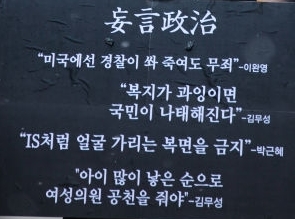 妄言政治
“미국에선 경찰이 쏴 죽여도 무죄”-이완영
“복지가 과잉이면
국민이 나태해진다”-김무성
“IS처럼 얼굴 가리는 복면을 금지”-박근혜
"아이 많이 낳은 순으로
여성의원 공천을 줘야"-김무성